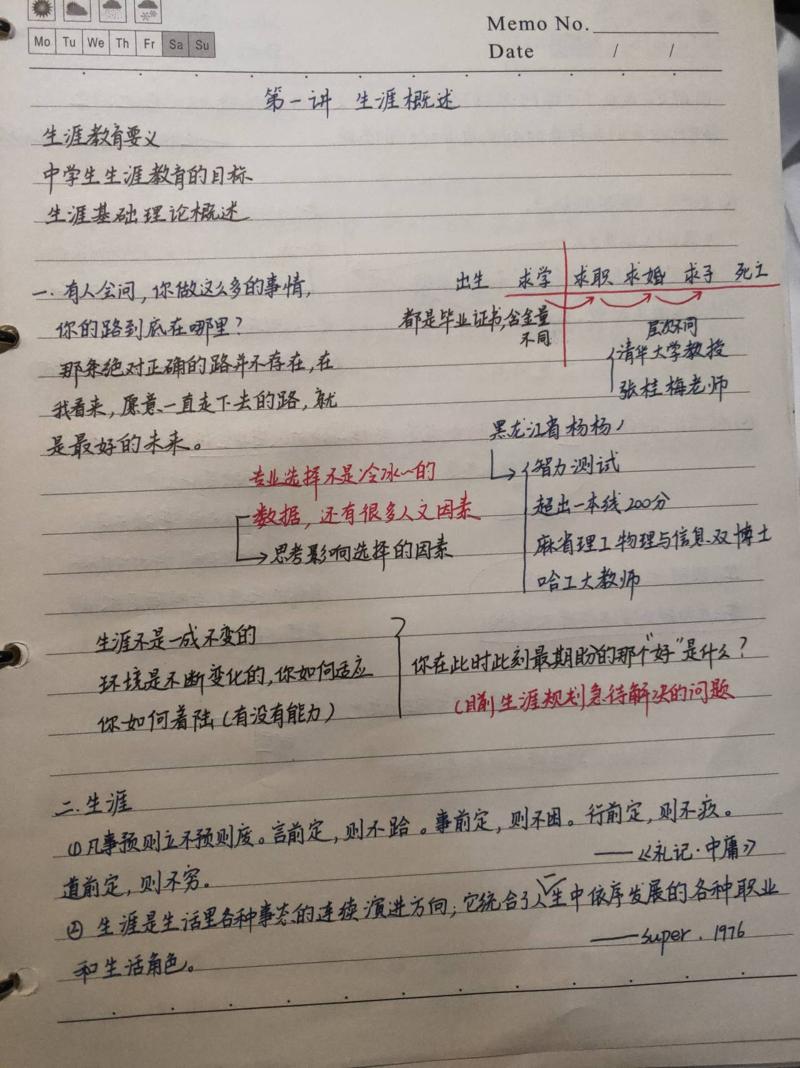 Memo No.
Mo Tu We Th Fr Sa Su
Date / /
第一讲 生涯概述
生涯教育要义
中学生生涯教育的目标
生涯基础理论概述
一.有人会问,你做这么多的事情,
你的路到底在哪里?
那条绝对正确的路并不存在,在
我看来,愿意一直走下去的路,就
是最好的未来。
出生 求学 求职 求婚 求子 死亡
都是毕业证书,含金量
不同
层次不同
清华大学教授
张桂梅老师
黑龙江省杨杨
智力测试
超出一本线200分
麻省理工物理与信息双博士
哈工大教师
专业选择不是冷冰~的
数据,还有很多人文因素
思考影响选择的因素
生涯不是一成不变的
环境是不断变化的,你如何适应
你如何着陆(有没有能力)
你在此时此刻最期盼的那个"好"是什么?
(目前)生涯规划急待解决的问题
二.生涯
(1)凡事预则立不预则废。言前定,则不跲。事前定,则不困。行前定,则不疚。
道前定,则不穷。
——《礼记·中庸》
(2) 生涯是生活里各种事态的连续演进方向;它统合了人一生中依序发展的各种职业
和生活角色。
——super.1976